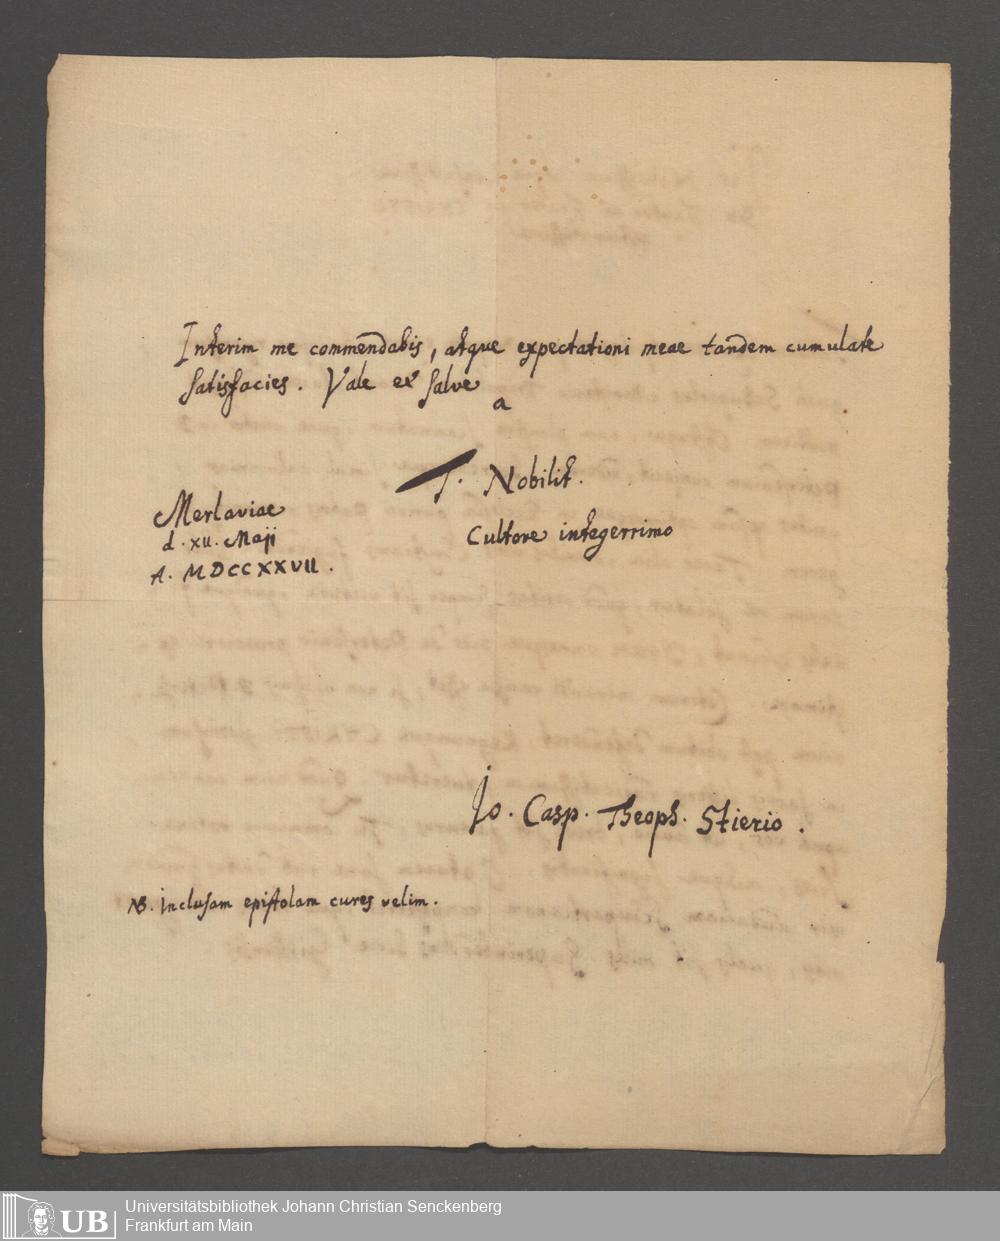 Interim me commendabis, atque expectationi meae tandem cumulate
satisfacies. Vale et salve
a
T. Nobilit.
Cultore integerrimo
Merlaviae
d. XII. Maji
A. MDCCXXVII.
Jo. Casp. Theoph. Stierio.
NB. inclusam epistolam cures velim.
UB
Universitätsbibliothek Johann Christian Senckenberg
Frankfurt am Main